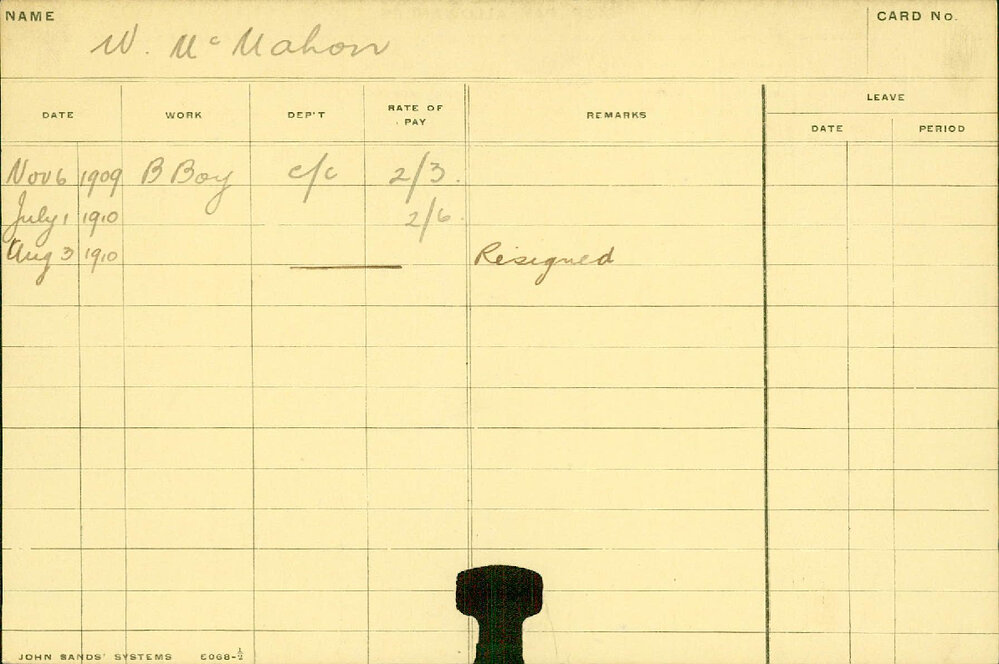 NAME
W. McMahon
CARD No.
DATE WORK DEP'T RATE OF PAY REMARKS LEAVE
DATE PERIOD
Nov 6 1909 B Boy c/c 2/3.
July 1 1910 2/6.
Aug 3 1910 Resigned
JOHN SANDS' SYSTEMS E068-½